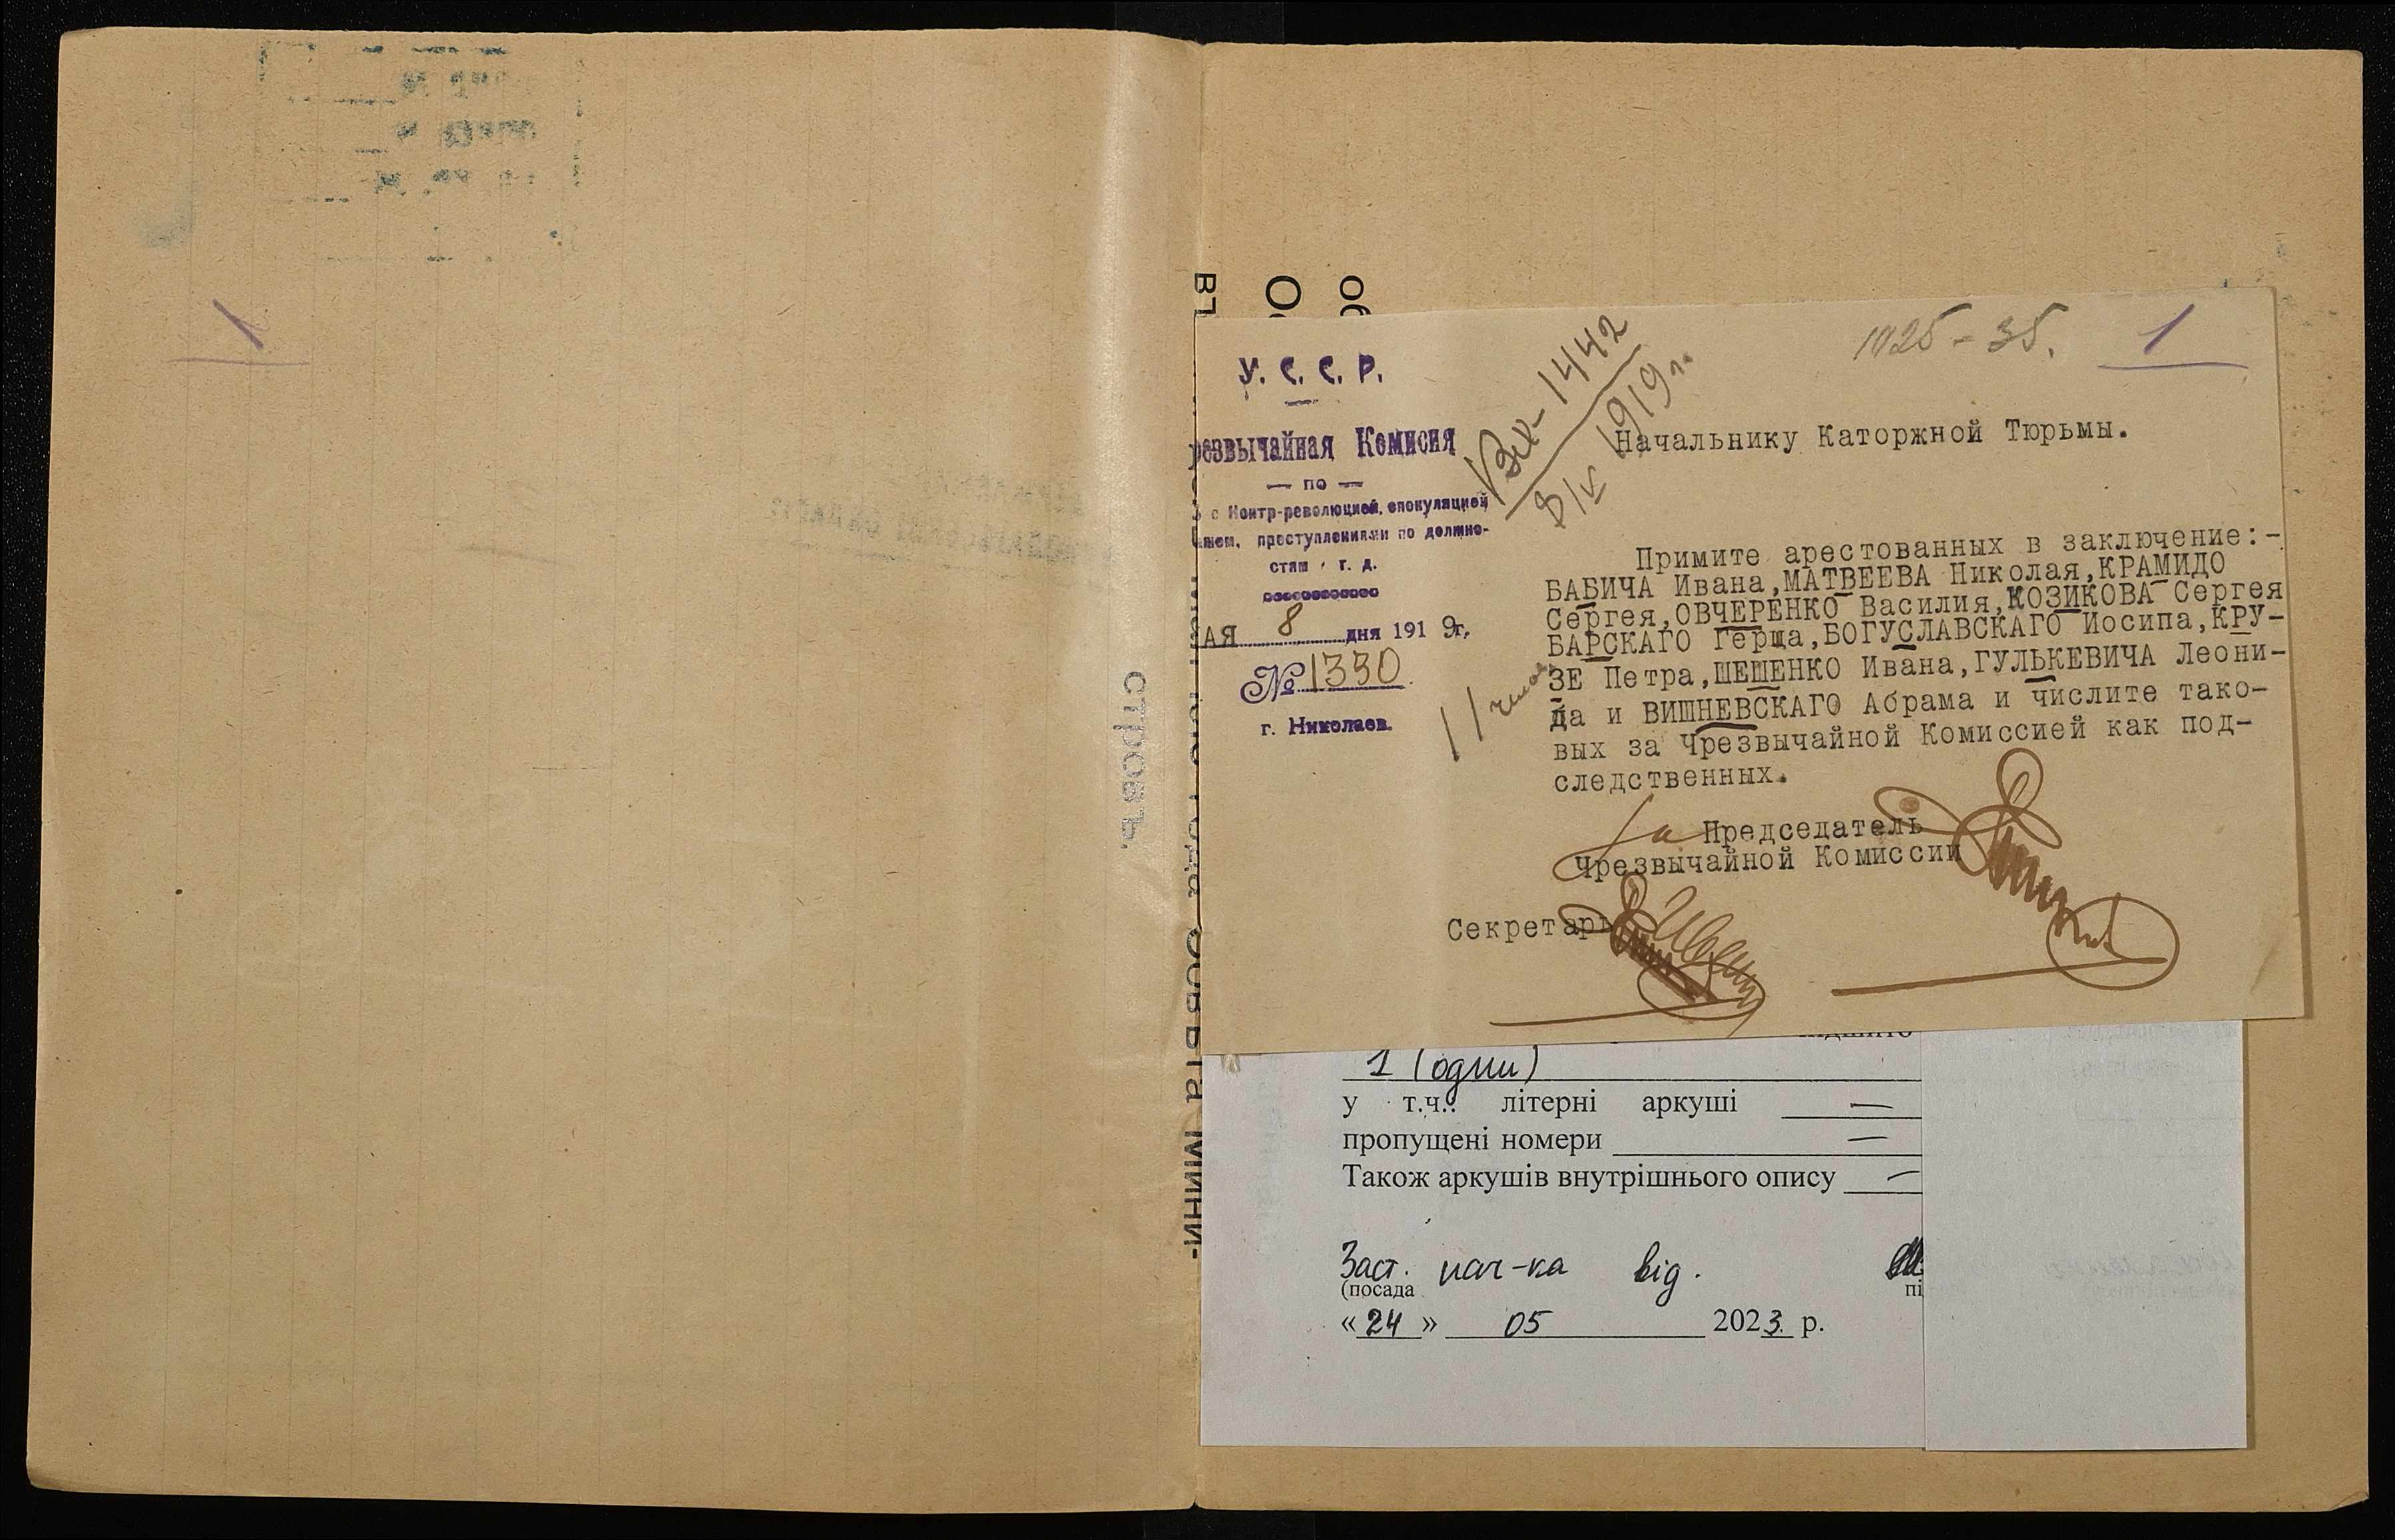 1
ВЪ
Об
У. С. С. Р.
резвычайная Комисия
— по —
с Контр-революцией, спекуляцией
преступлениями по должно-
стям г. д.
АЯ 8 дня 1919г,
№ 1330
г. Николаев.
1442
8/V 1919 г.
1925-35. 1
Начальнику Каторжной Тюрьмы.
Примите арестованных в заключение:-
БАБИЧА Ивана,МАТВЕЕВА Николая,КРАМИДО
Сергея,ОВЧЕРЕНКО Василия,КОЗИКОВА Сергея
БАРСКАГО Герша,БОГУСЛАВСКАГО Иосипа,КРУ-
ЗЕ Петра,ШЕШЕНКО Ивана,ГУЛЬКЕВИЧА Леони-
да и ВИШНЕВСКАГО Абрама и числите тако-
вых за Чрезвычайной Комиссией как под-
следственных.
За Председатель
Чрезвычайной Комиссии
Секретарь
стровъ.
1 (один)
у т.ч.: літерні аркуші —
пропущені номери —
Також аркушів внутрішнього опису —
Заст. нач-ка від.
(посада пі
« 24 » 05 2023 р.